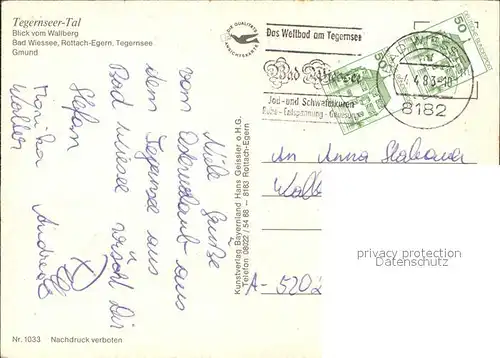 Tegernseer-Tal
Blick vom Wallberg
Bad Wiessee, Rottach-Egern, Tegernsee
Gmund
DIE QUALITÄTS
ANSICHTSKARTE
Das Weltbad am Tegernsee
Bad Wiessee
Jod- und Schwefelkuren
Ruhe - Entspannung - Genesung
BAD WIESSEE
4.4.83-18
8182
50
50
DEUTSCHE BUNDESPOST
Viele Grüße
vom Osterurlaub aus
dem Tegernsee aus
Bad Wiessee wünscht Dir
Stefan
Monika
Walter
Andreas
Kunstverlag Bayernland Hans Geissler o.H.G.
Telefon 08022 / 54 68 — 8183 Rottach-Egern.
An Anna
A-5202
privacy protection
watermark
Nr. 1033 Nachdruck verboten